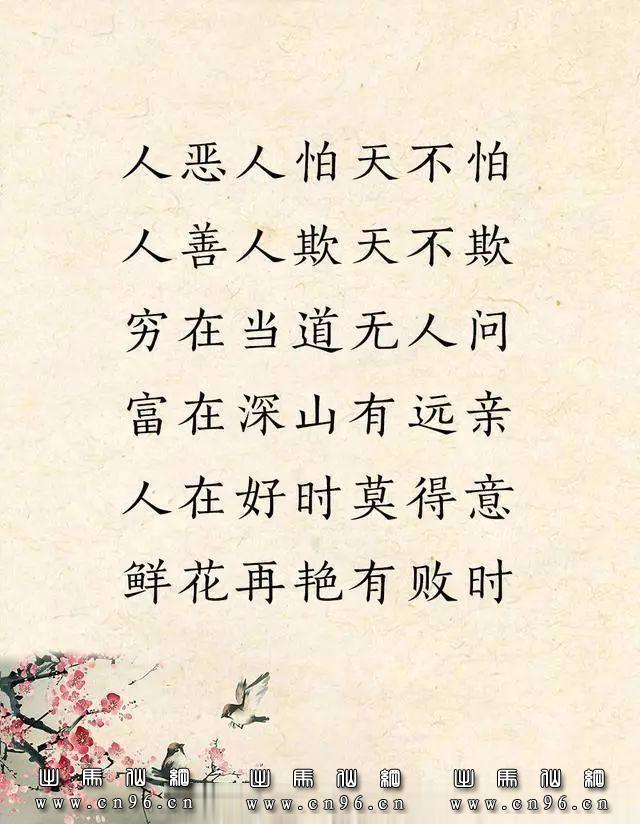 人恶人怕天不怕
人善人欺天不欺
穷在当道无人问
富在深山有远亲
人在好时莫得意
鲜花再艳有败时
出馬仙網 出馬仙網 出馬仙網
www.cn96.cn www.cn96.cn www.cn96.cn